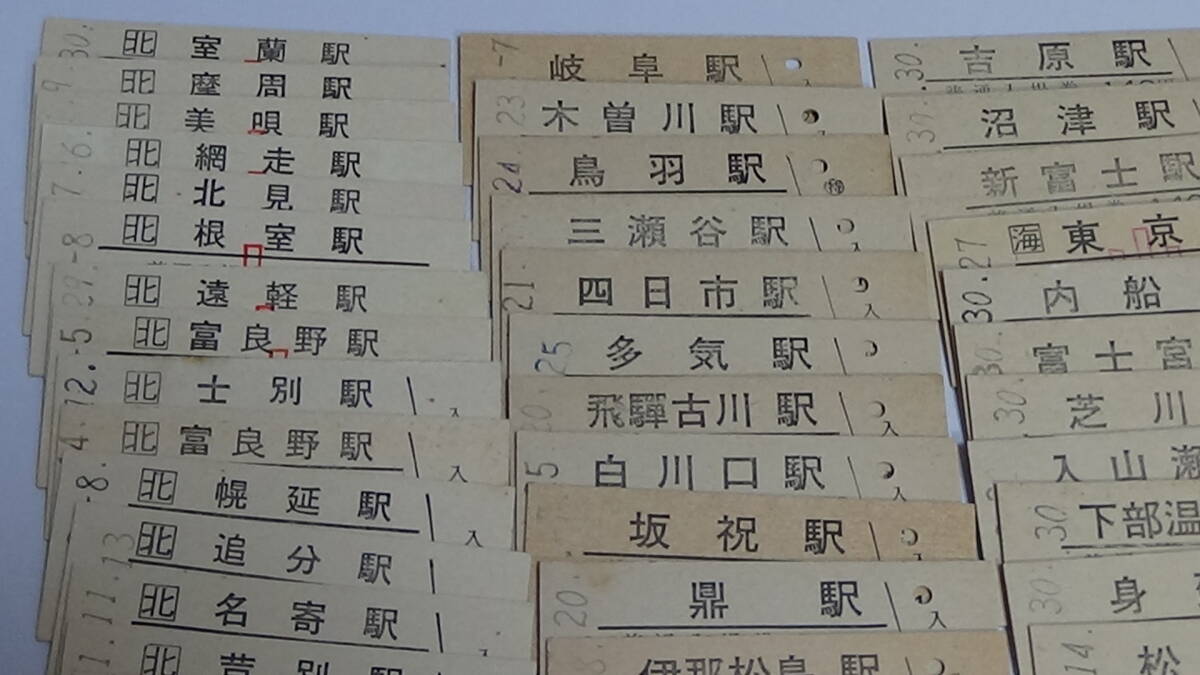 30. 北 室蘭駅
9. 北 摩周駅
北 美唄駅
6. 北 網走駅
7. 北 北見駅
-8 北 根室駅
29. 北 遠軽駅
-5 北 富良野駅
12. 北 士別駅 入
4. 北 富良野駅 入
-8. 北 幌延駅 入
13 北 追分駅
11. 北 名寄駅
11. 北 芦別駅
-7 岐阜駅 入
23 木曽川駅
24 鳥羽駅
三瀬谷駅 入
21. 四日市駅 入
25 多気駅
20. 飛驒古川駅 入
5 白川口駅 入
坂祝駅 入
20. 鼎駅 入
伊那松島駅
30. 吉原駅
30. 沼津駅
新富士駅
27 海 東京
30. 内船
30. 富士宮
30. 芝川
入山瀬
30 下部温
30 身
14 松